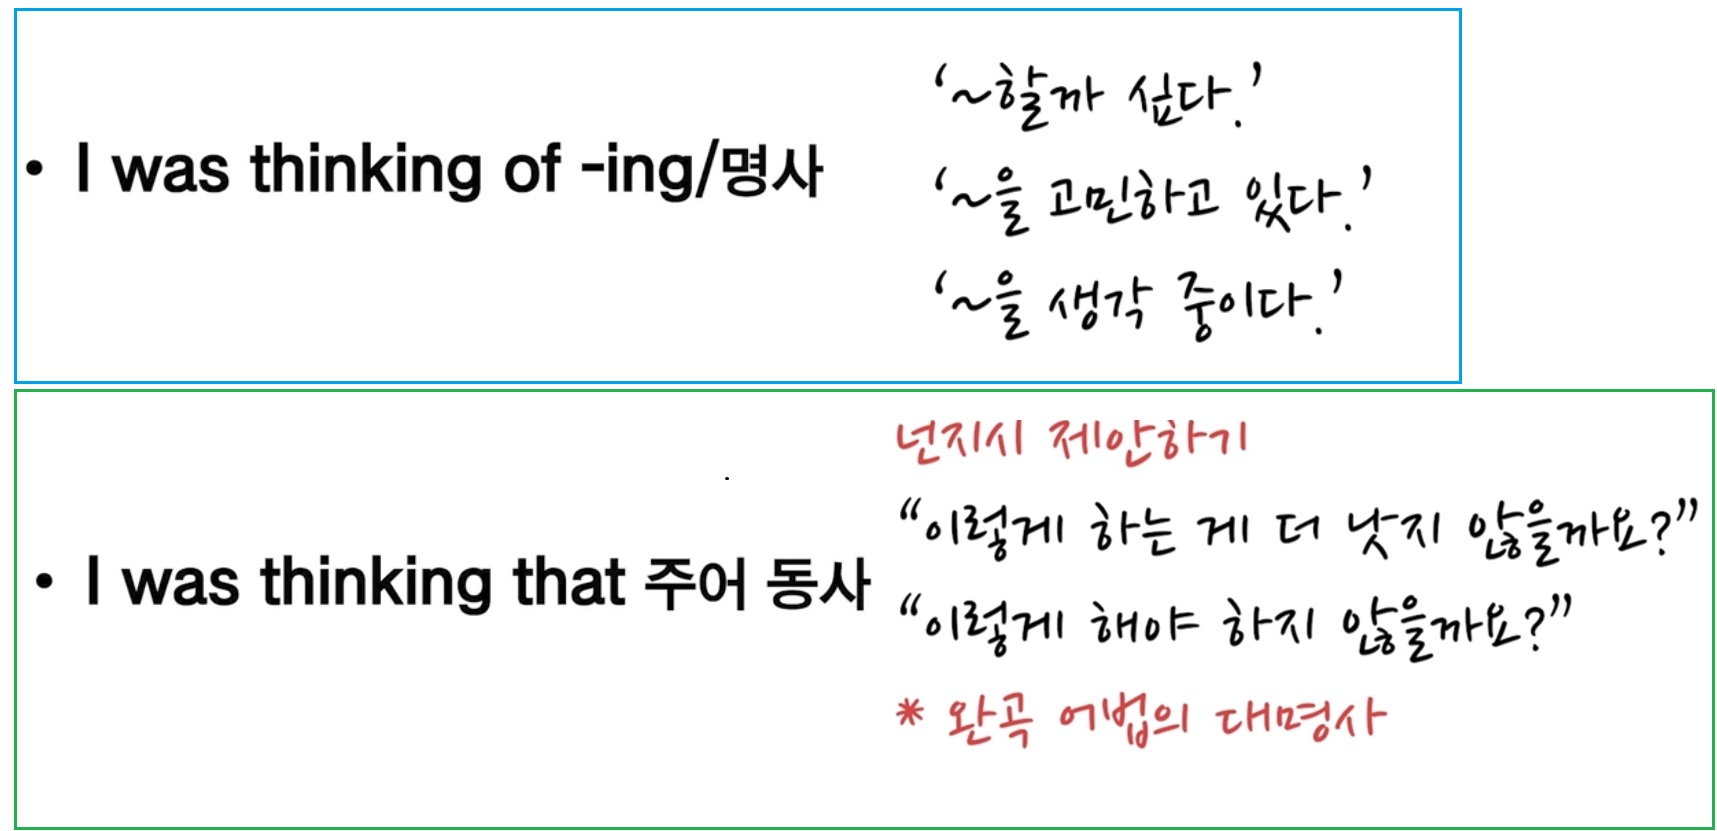 • I was thinking of -ing/명사
'~할까 싶다.'
'~을 고민하고 있다.'
'~을 생각 중이다.'
넌지시 제안하기
• I was thinking that 주어 동사
"이렇게 하는 게 더 낫지 않을까요?"
"이렇게 해야 하지 않을까요?"
* 완곡 어법의 대명사